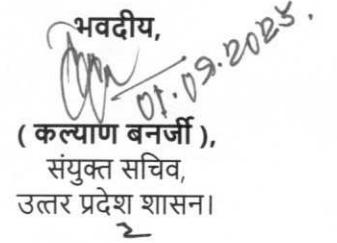 भवदीय,
01.09.2025.
( कल्याण बनर्जी ),
संयुक्त सचिव,
उत्तर प्रदेश शासन।
2